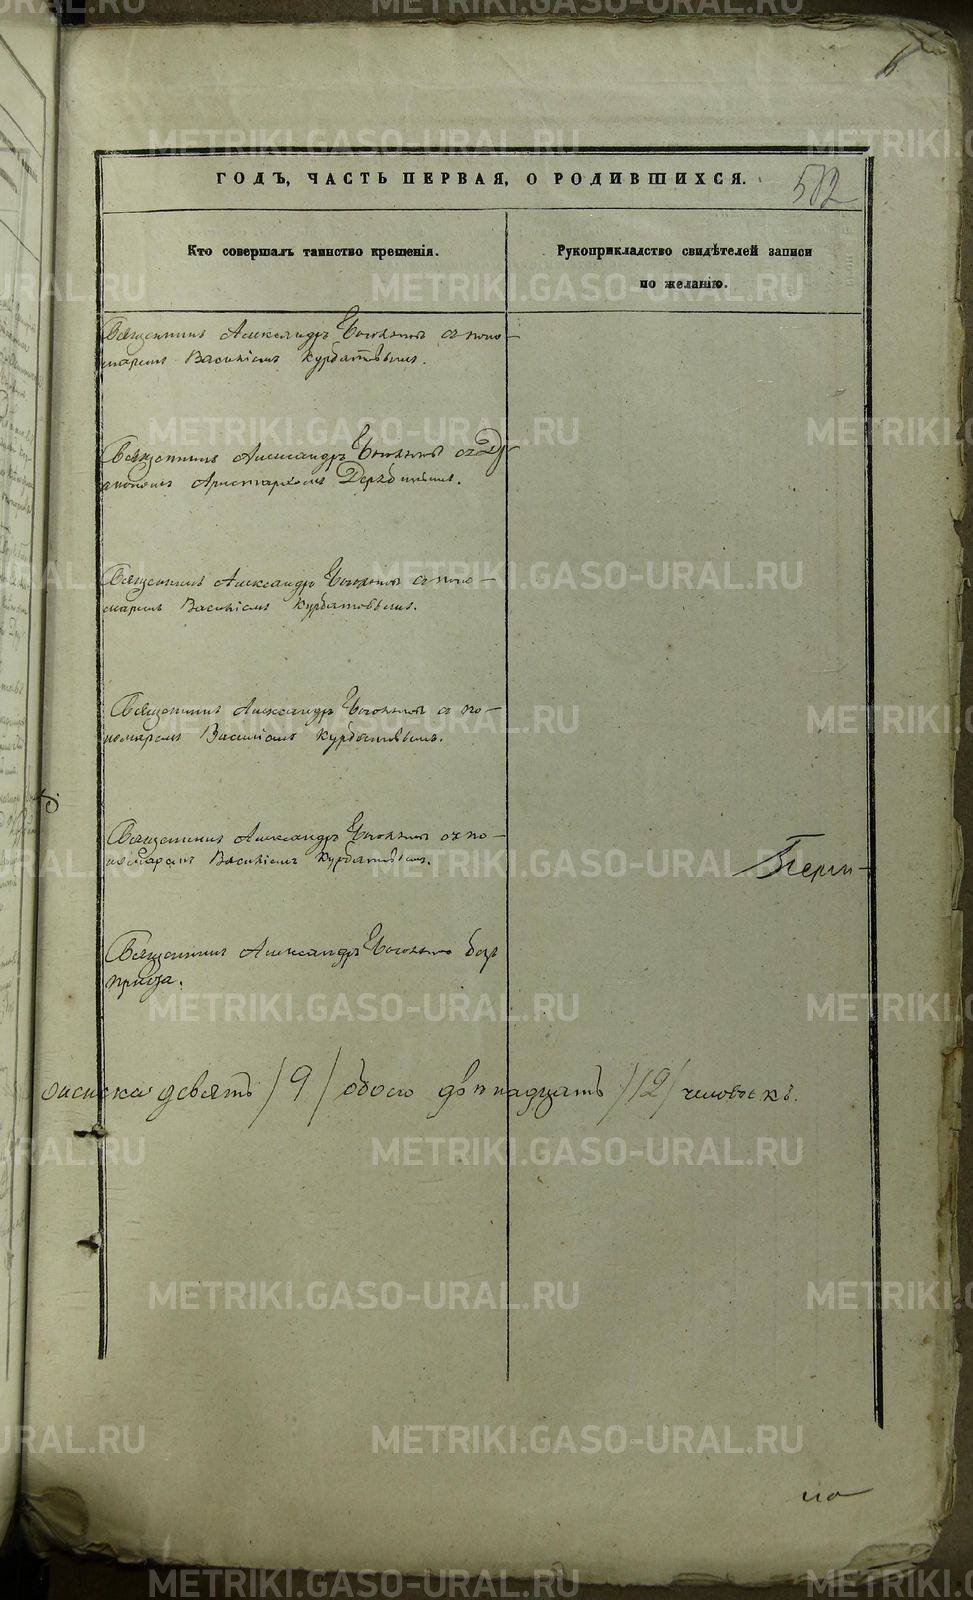 6
ГОДЪ, ЧАСТЬ ПЕРВАЯ, О РОДИВШИХСЯ.
502
Кто совершалъ таинство крещенія.
Рукоприкладство свидѣтелей записи
по желанію.
Священникъ Александръ съ поно-
маремъ Василіемъ Курбатовымъ.
Священникъ Александръ съ Ді-
акономъ Аристархомъ
Священникъ Александръ съ поно-
маремъ Василіемъ Курбатовымъ.
Священникъ Александръ съ по-
номаремъ Василіемъ Курбатовымъ.
Священникъ Александръ съ по-
номаремъ Василіемъ Курбатовымъ.
Священникъ Александръ безъ
причта.
женска девять /9/ обоего двѣнадцать /12/ человѣкъ.
METRIKI.GASO-URAL.RU